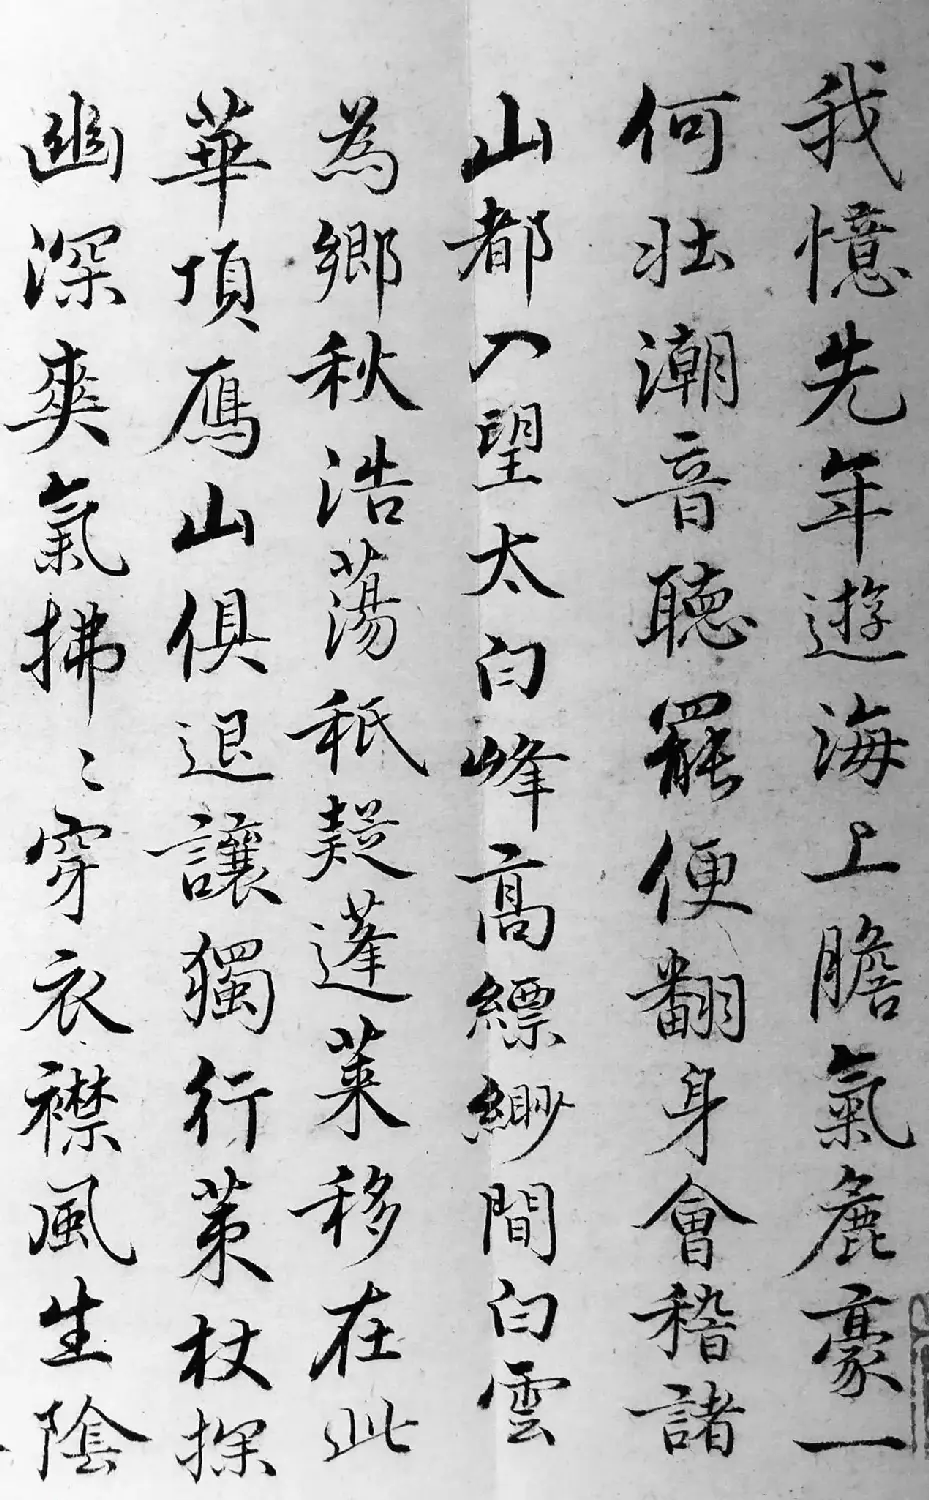 我憶先年遊海上膽氣麁豪一
何壯潮音聽罷便翻身會稽諸
山都入望太白峰高縹緲間白雲
為鄉秋浩蕩秖疑蓬萊移在此
華頂鴈山俱退讓獨行策杖探
幽深爽氣拂〻穿衣襟風生陰